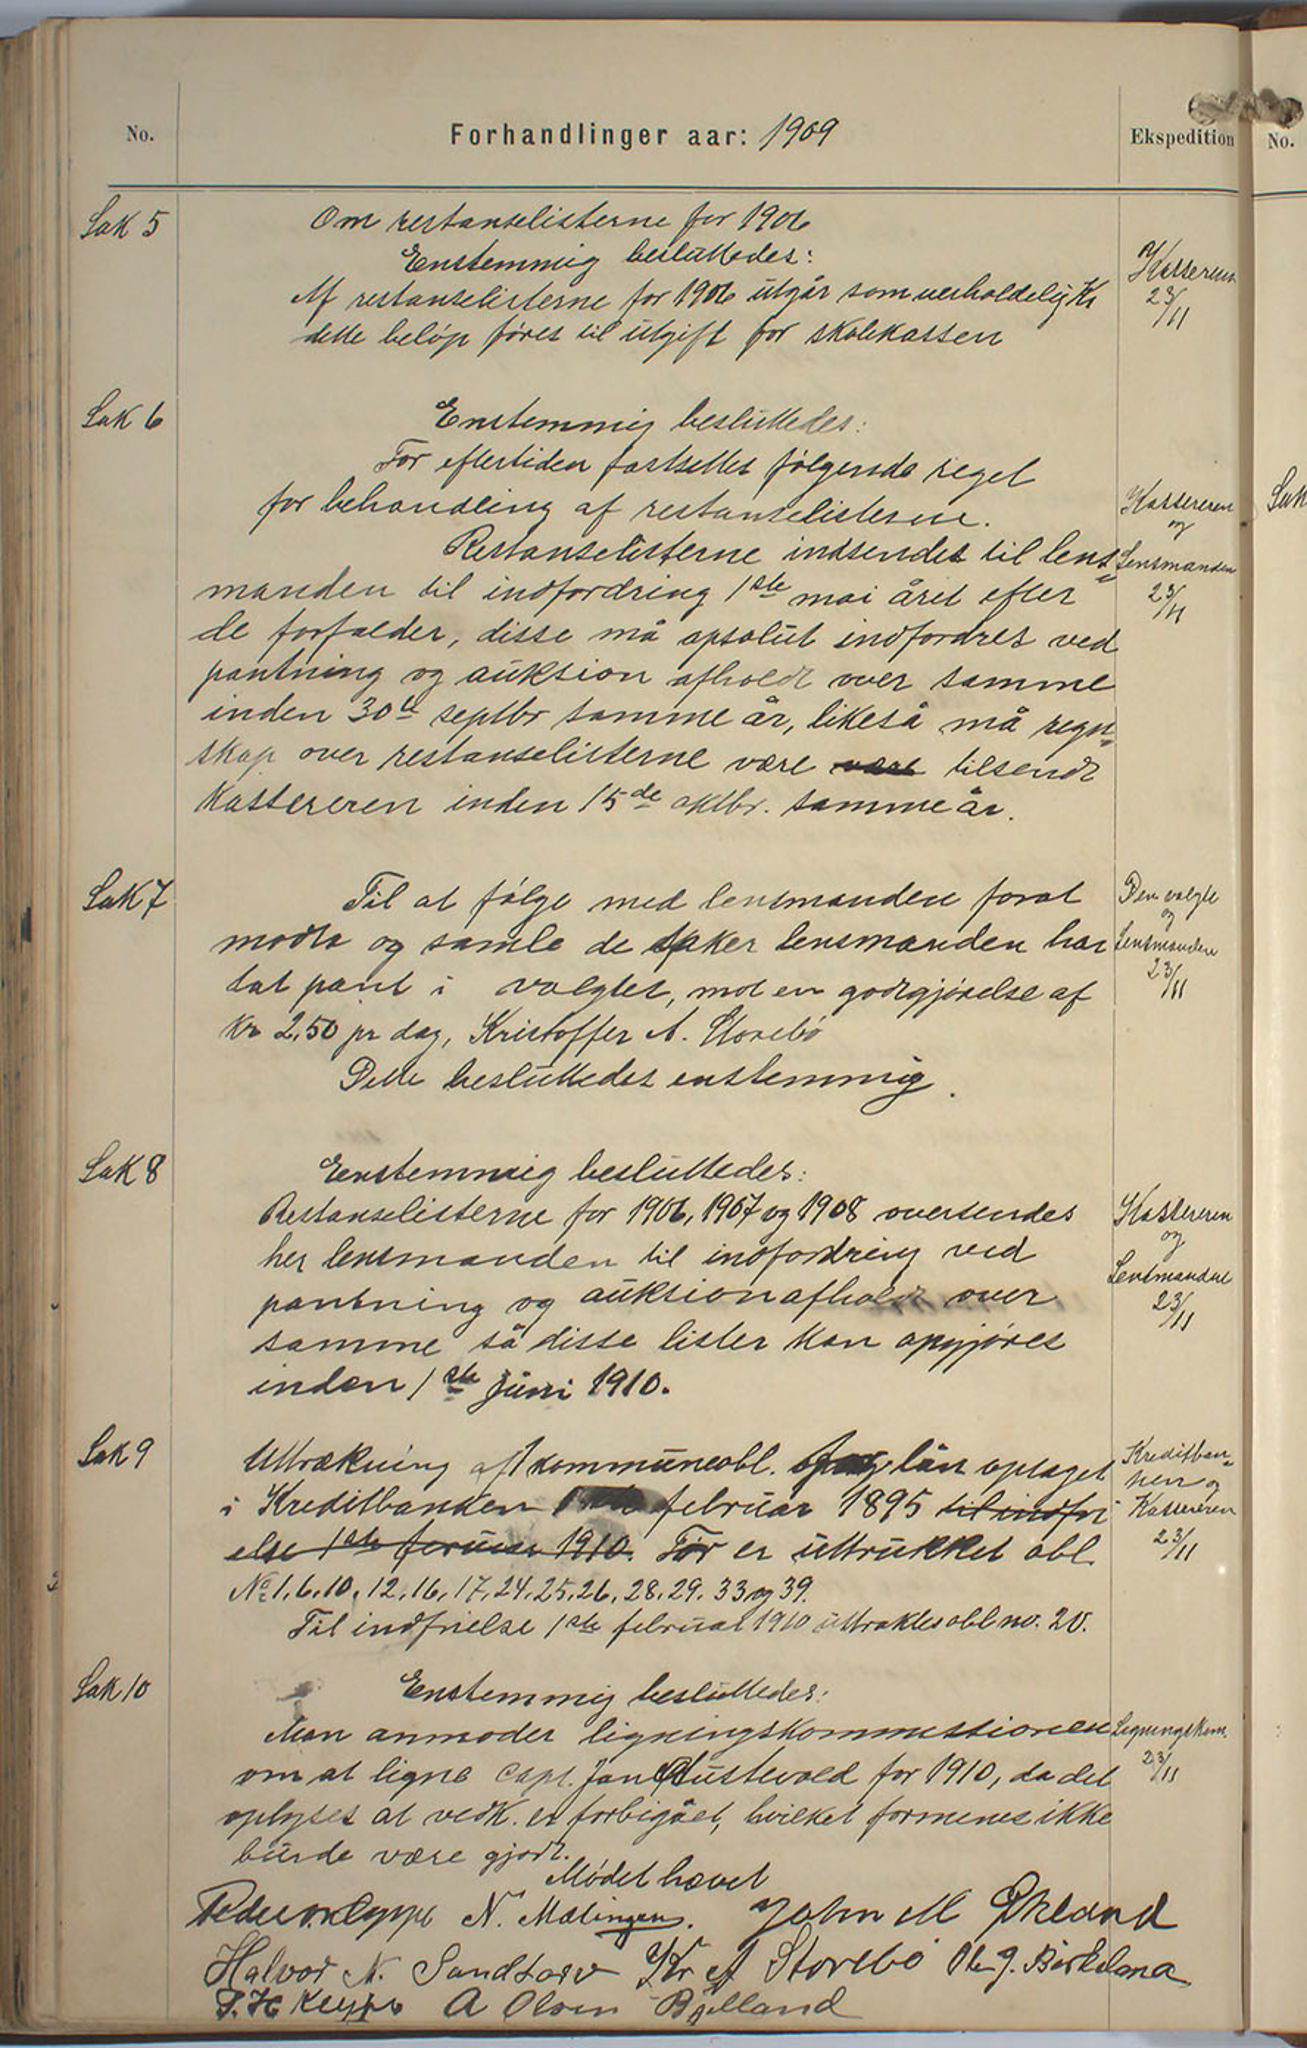 No.
Forhandlinger aar: 1909
Ekspedition
No.
Sak 5
Om restanselisterne for 1906
Enstemmig besluttedes:
Af restanselisterne for 1906 utgår som uerholdelig Kr
dette beløp føres til utgift for skolekassen
Kassereren
23/11
Sak 6
Enstemmig besluttedes:
For eftertiden fastsettes følgende regel
for behandling af restanselisterne.
Restanselisterne indsendes til lens=
manden til indfordring 1ste mai året efter
de forfalder, disse må apsolut indfordres ved
pantning og auktion afholdt over samme
inden 30te septbr samme år, likeså må regn=
skap over restanselisterne være være tilsendt
Kassereren inden 15de oktbr. samme år.
Kassereren
og
Lensmanden
23/11
Sak
Sak 7
Til at følge med lensmanden forat
modta og samle de saker lensmanden har
tat pant i valgtes, mot en godtgjørelse af
Kr 2,50 pr dag, Kristoffer A. Storebø
Dette besluttedes enstemmig.
Den valgte
og
Lensmanden
23/11
Sak 8
Enstemmig besluttedes:
Restanselisterne for 1906, 1907 og 1908 oversendes
her lensmanden til indfordring ved
pantning og auktion afholdt over
samme så disse lister kan opgjøres
inden 1ste juni 1910.
Kassereren
og
Lensmanden
23/11
Sak 9
Uttrækning af 1 kommuneobl. lån optaget
i Kreditbanken februar 1895 til indfri
else 1ste feruar 1910. Før er uttrukket obl.
No 1, 6, 10, 12, 16, 17, 24, 25, 26, 28, 29, 33 og 39.
Til indfrielse 1ste februar 1910 uttraktes obl no. 20.
Kreditban=
ken og
Kassereren
23/11
Sak 10
Enstemmig besluttedes:
Man anmoder ligningskommissionen
om at ligne Capt. Jan Austevold for 1910, da det
oplyses at vedk. er forbigået, hvilket formenes ikke
burde være gjort.
Ligningskom.
23/11
Mødet hævet
Peder Kyppe N. Mælingen. John M Økland
Halvor N. Sandtorv Kr A Storebø Ole J. Birkeland
P. H Keyppe A Olsen Bjelland